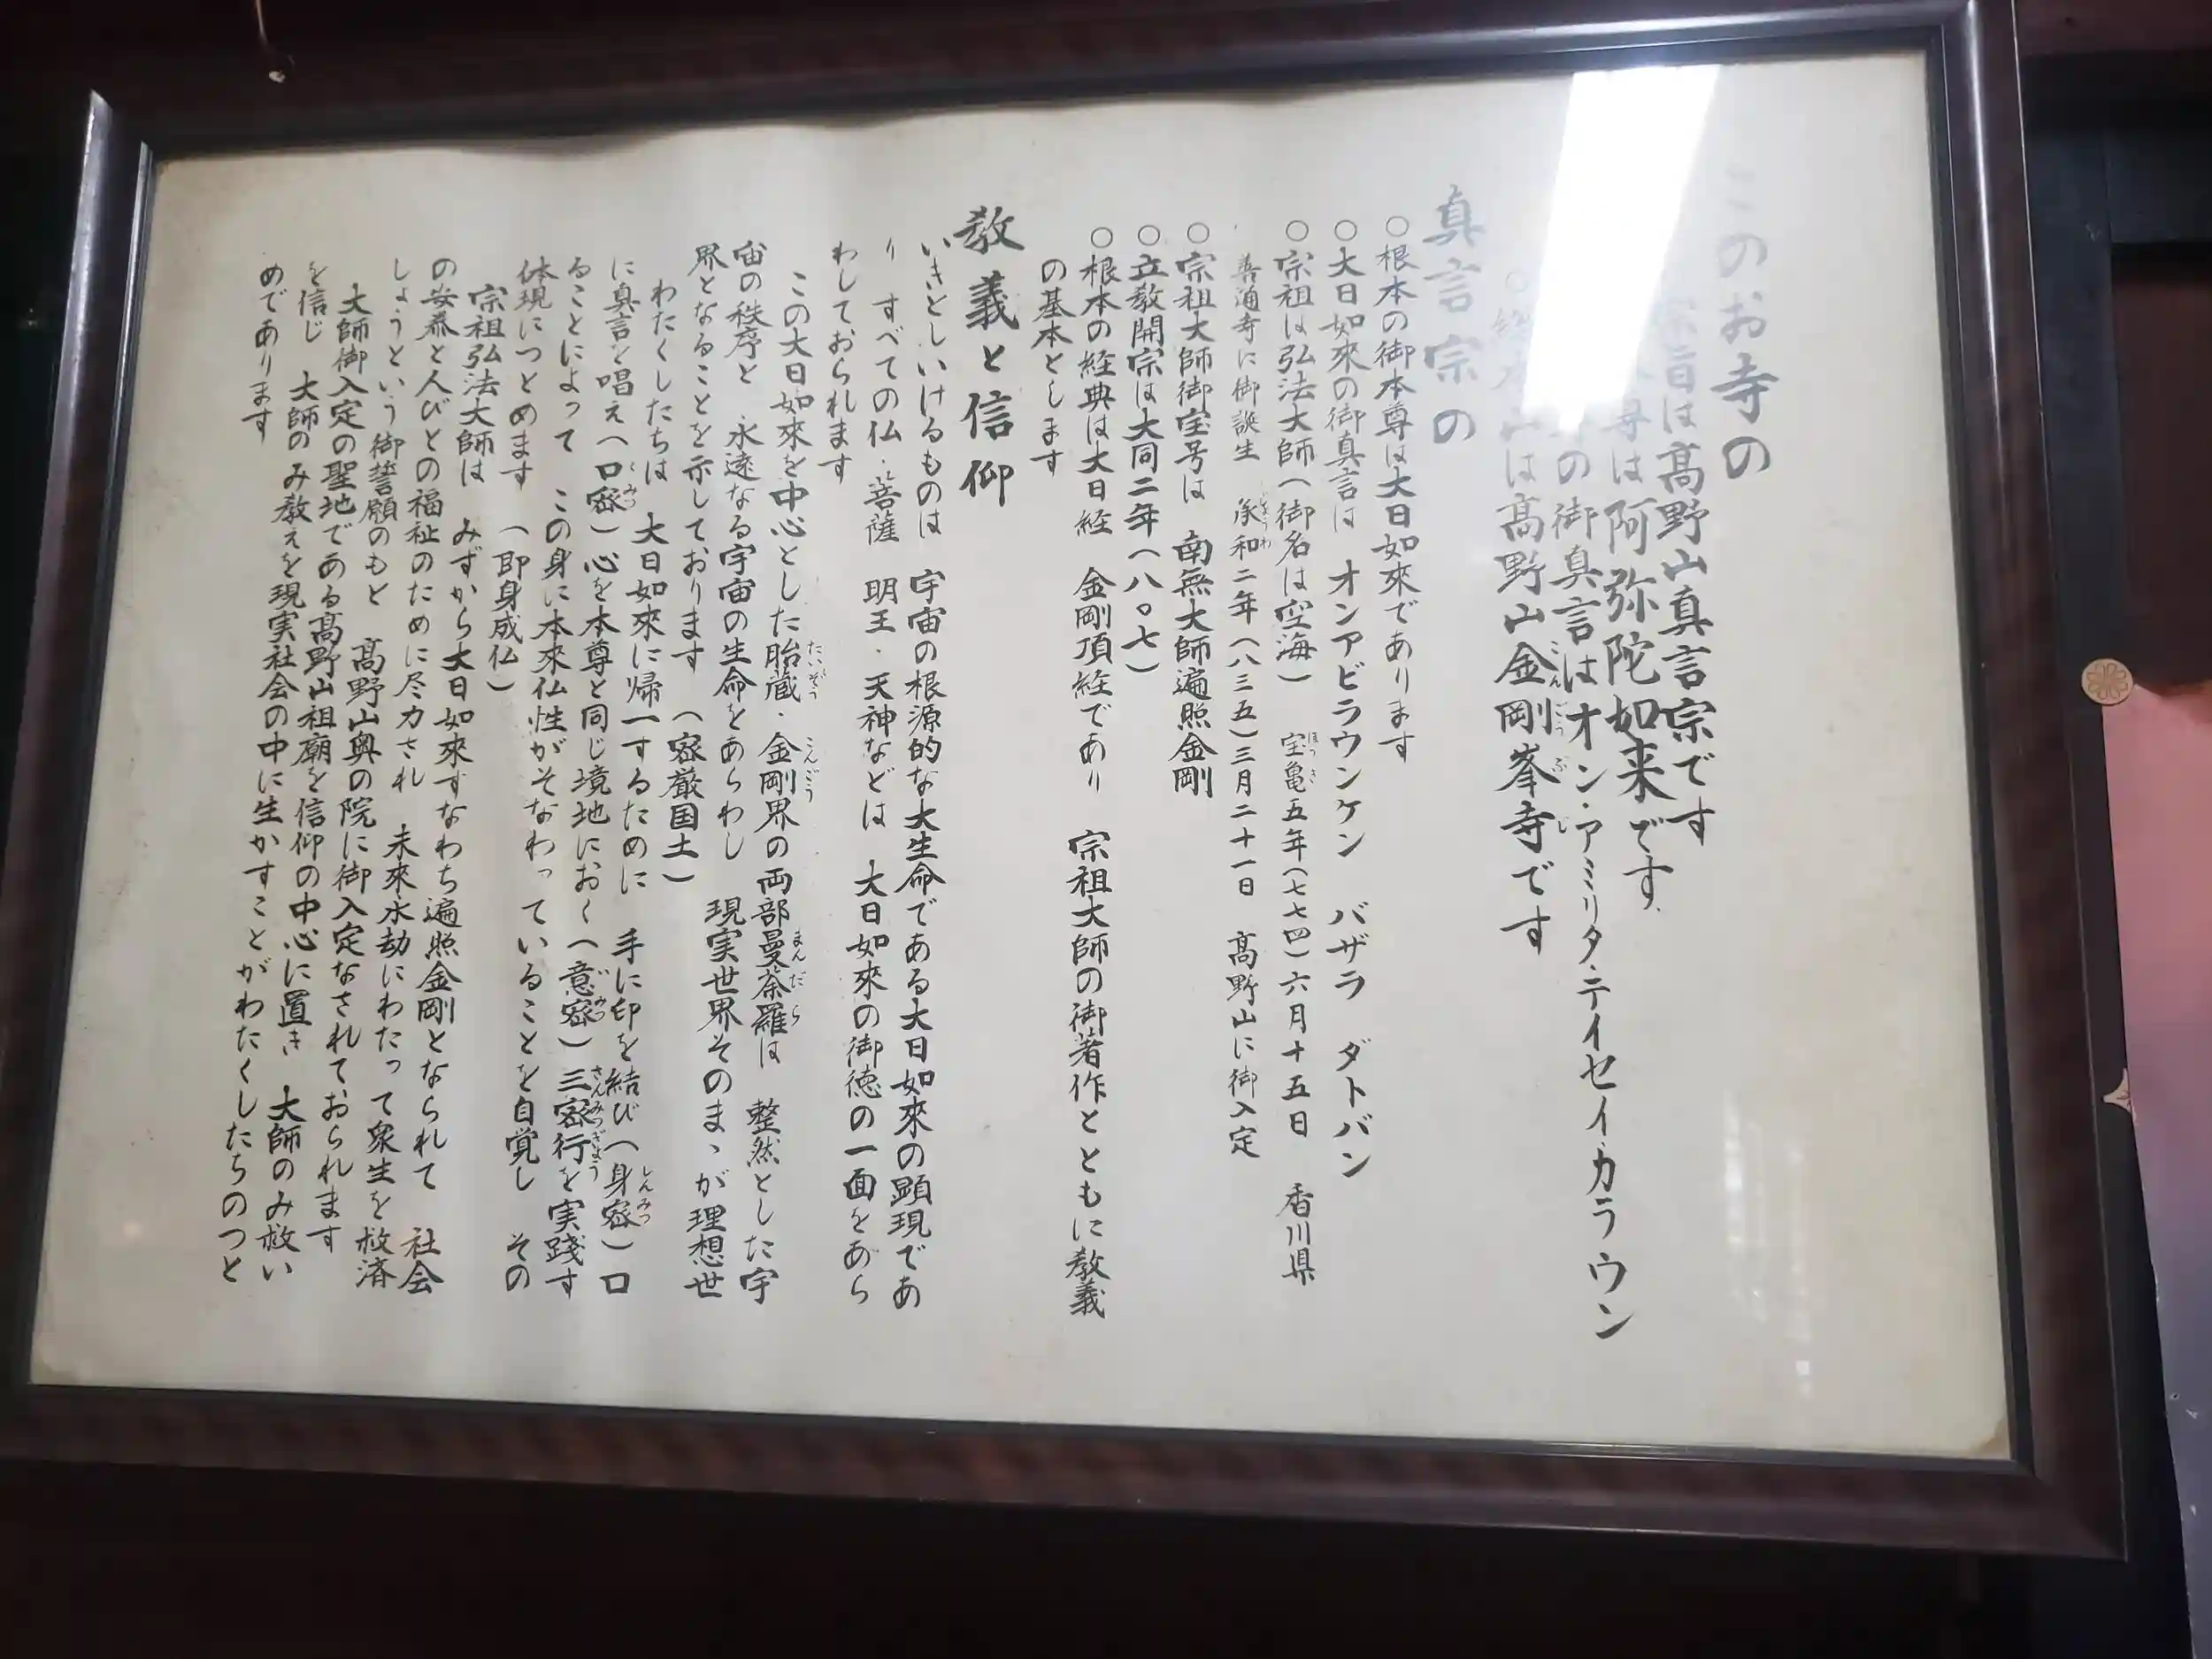 このお寺の
宗旨は髙野山真言宗です
尊は阿弥陀如来です
の御真言はオン・アミリタ・テイセイ・カラウン
山は髙野山金剛峯寺です
真言宗の
○根本の御本尊は大日如來であります
○大日如來の御真言は オンアビラウンケン バザラ ダトバン
○宗祖は弘法大師(御名は空海) 宝亀五年(七七四)六月十五日 香川県
善通寺に御誕生 承和二年(八三五)三月二十一日 髙野山に御入定
○宗祖大師御宝号は 南無大師遍照金剛
○立教開宗は大同二年(八〇七)
○根本の経典は大日経 金剛頂経であり 宗祖大師の御著作とともに教義
の基本とします
教義と信仰
いきとしいけるものは 宇宙の根源的な大生命である大日如來の顕現であ
り すべての仏・菩薩 明王・天神などは 大日如來の御徳の一面をあら
わしておられます
この大日如來を中心とした胎蔵・金剛界の両部曼荼羅は 整然とした宇
宙の秩序と 永遠なる宇宙の生命をあらわし 現実世界そのまゝが理想世
界となることを示しております (密厳国土)
わたくしたちは 大日如來に帰一するために 手に印を結び(身密)口
に真言を唱え(口密)心を本尊と同じ境地におく(意密)三密行を実践す
ることによって この身に本來仏性がそなわっていることを自覚し その
体現につとめます (即身成仏)
宗祖弘法大師は みずから大日如來すなわち遍照金剛となられて 社会
の安泰と人びとの福祉のために尽力され 未來永劫にわたって衆生を救済
しようという御誓願のもと 髙野山奥の院に御入定なされております
大師御入定の聖地である髙野山祖廟を信仰の中心に置き 大師のみ救い
を信じ 大師のみ教えを現実社会の中に生かすことがわたくしたちのつと
めであります